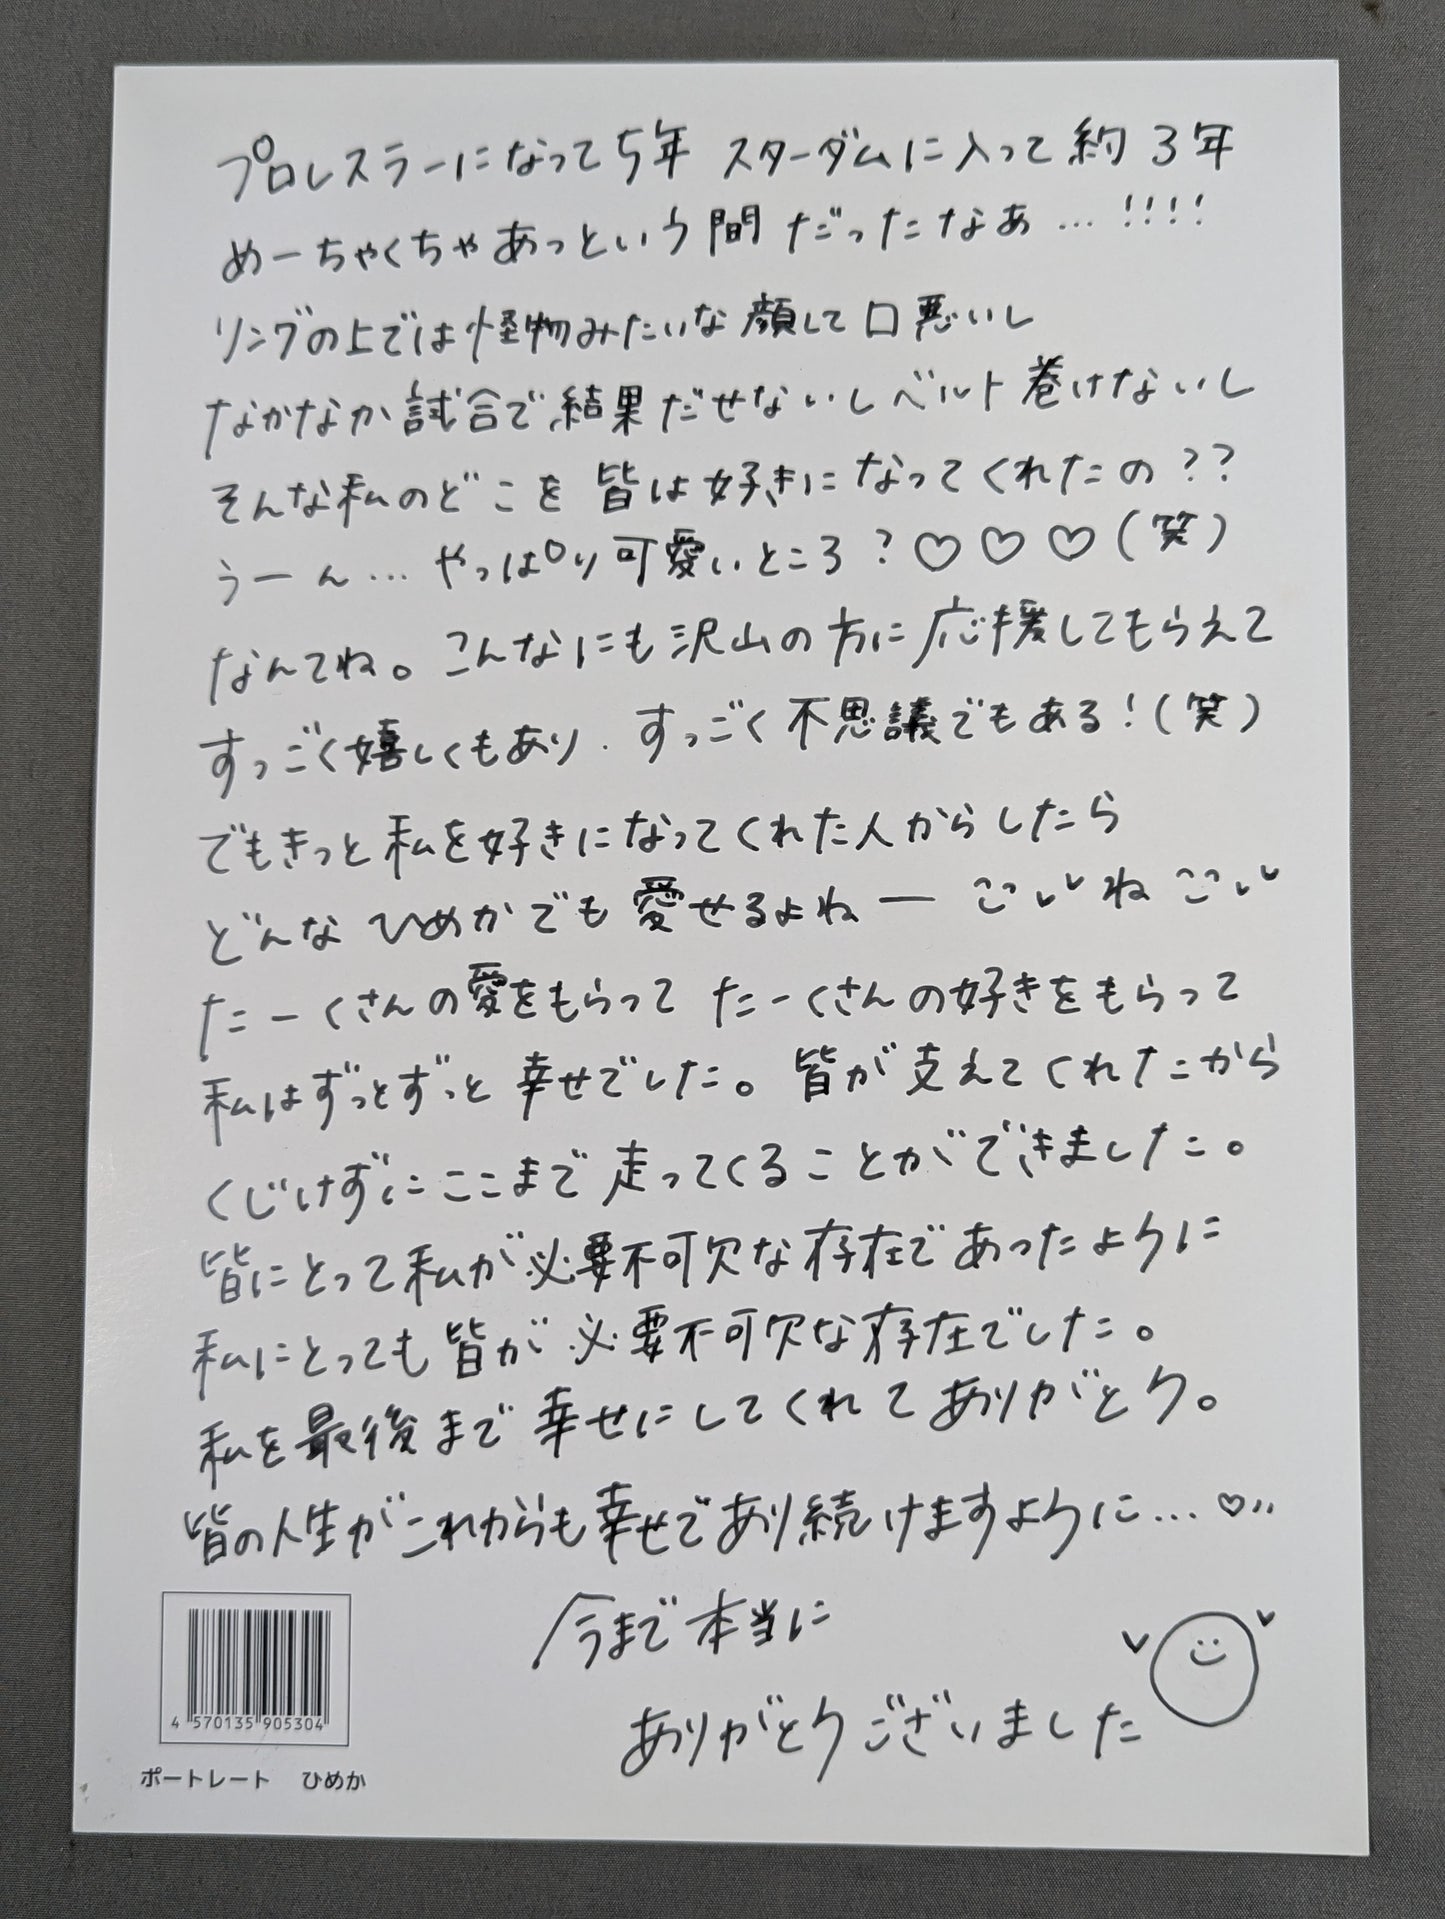 プロレスラーになって5年 スターダムに入って約3年
めーちゃくちゃあっという間だったなぁ…!!!!
リングの上では怪物みたいな顔して口悪いし
なかなか試合で結果だせないしベルト巻けないし
そんな私のどこを皆は好きになってくれたの??
うーん…やっぱり可愛いところ?♡♡♡(笑)
なんてね。こんなにも沢山の方に応援してもらえて
すっごく嬉しくもあり.すっごく不思議でもある!(笑)
でもきっと私を好きになってくれた人からしたら
どんなひめかでも愛せるよねー ね
たーくさんの愛をもらって たーくさんの好きをもらって
私はずっとずっと幸せでした。皆が支えてくれたから
くじけずにここまで走ってくることができました。
皆にとって私が必要不可欠な存在であったように
私にとっても皆が必要不可欠な存在でした。
私を最後まで幸せにしてくれてありがとう。
皆の人生がこれからも幸せであり続けますように…♡
今まで本当に
ありがとうございました
4 570135 905304
ポートレート ひめか